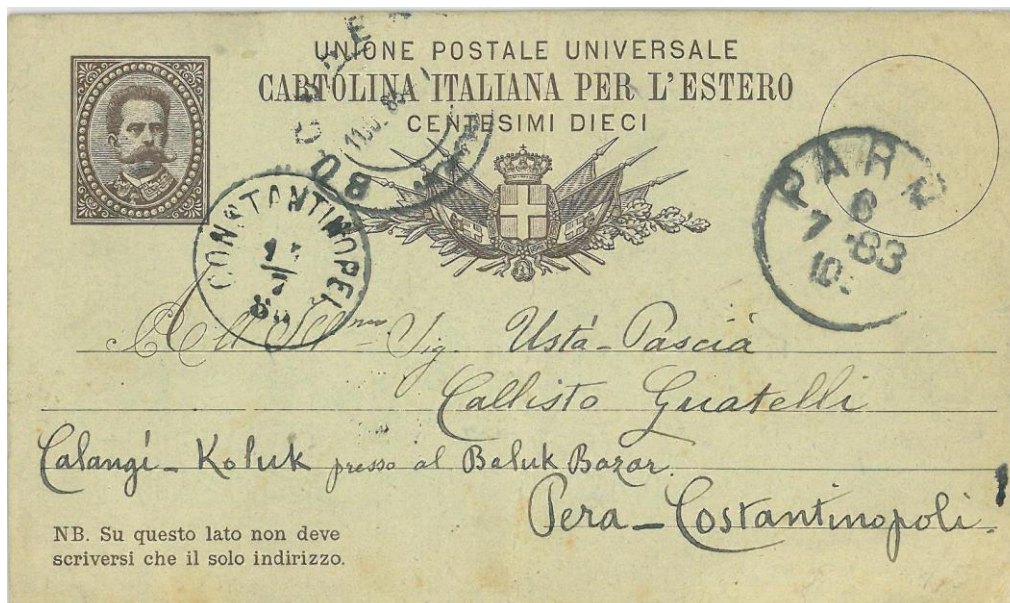 UNIONE POSTALE UNIVERSALE
CARTOLINA ITALIANA PER L'ESTERO
CENTESIMI DIECI
CONSTANTINOPEL
PARM
6
7 83
10
All'Ill.mo Sig. Ustà-Pascià
Callisto Guatelli
Calangi-Koluk presso al Baluk Bazar.
Pera-Costantinopoli.
NB. Su questo lato non deve
scriversi che il solo indirizzo.